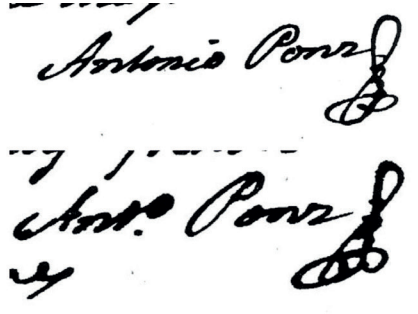 Antonio Ponz
Ant.º Ponz